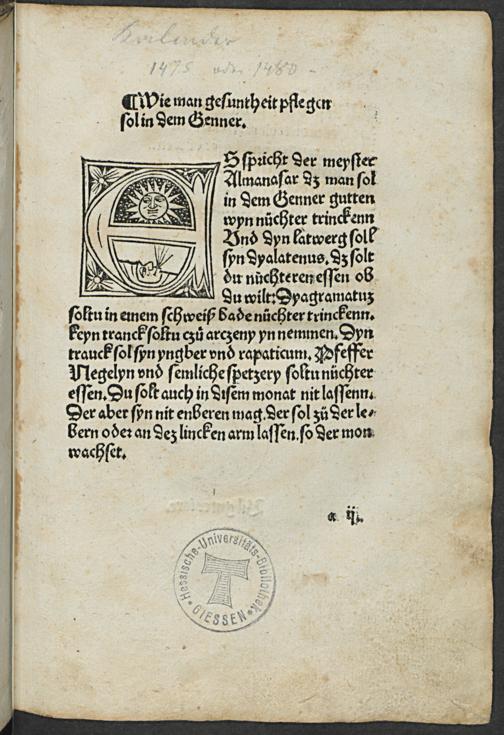 Kalender
1475 oder 1480 -
¶Wie man gesuntheit pflegen
sol in dem Genner.
ES spricht der meyster
Almanasar dz man sol
in dem Genner gutten
wyn nüchter trinckenn
Vnd dyn latwerg soll
syn dyalatenus. dz solt
du nüchteren essen ob
du wilt: Dyagramatuz
soltu in einem schweiß bade nüchter trinckenn.
keyn tranck soltu czü arczeny yn nemmen. Dyn
tranck sol syn yngber vnd rapaticum. Pfeffer
Negelyn vnd semliche spetzery soltu nüchter
essen. Du solt auch in disem monat nit lassenn.
Der aber syn nit enberen mag. der sol zü der le⸗
bern oder an dez lincken arm lassen. so der mon
wachset.
a ij.
Hessische-Universitäts-Bibliothek
GIESSEN